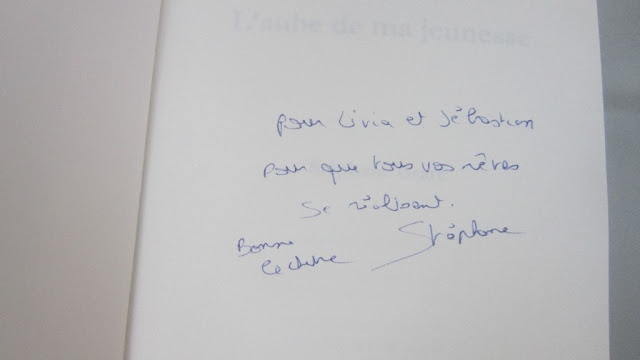 L'aube de ma jeunesse
pour Livia et Sébastien
pour que tous vos rêves
se réalisent.
Bonne
lecture
Stéphane